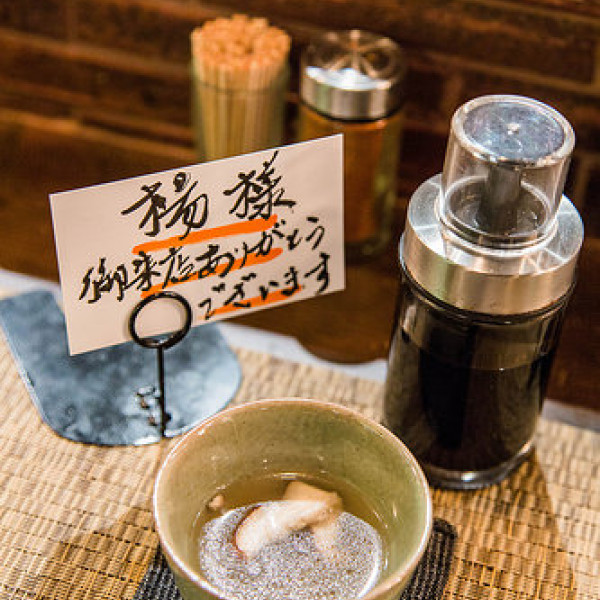 楊様
御来店ありがとう
でございます